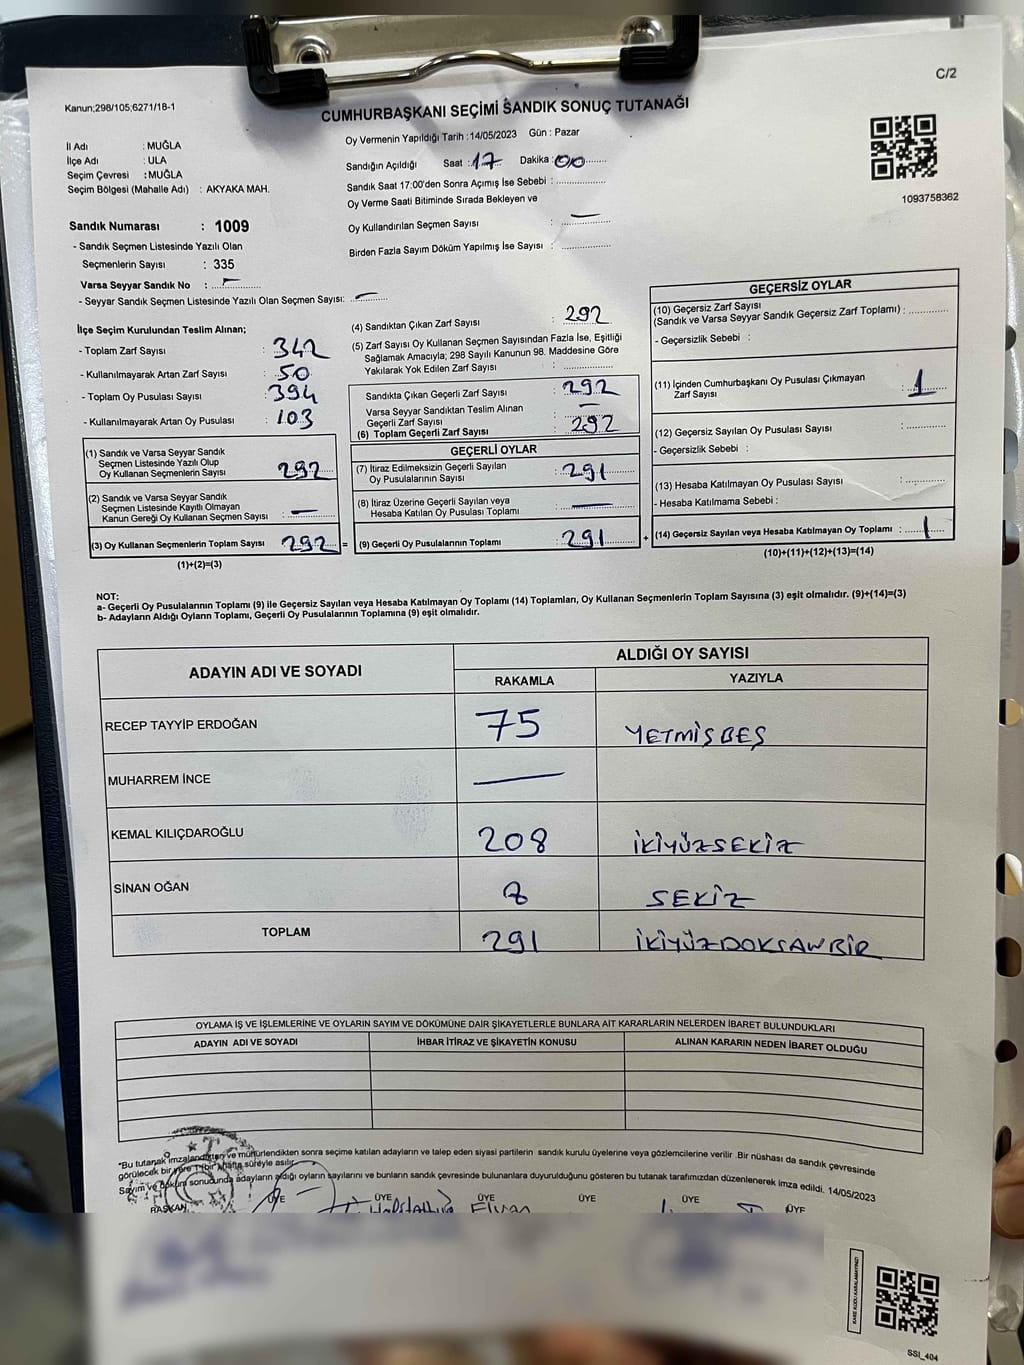 C/2
Kanun;298/105,6271/18-1
CUMHURBAŞKANI SEÇİMİ SANDIK SONUÇ TUTANAĞI
İl Adı : MUĞLA
İlçe Adı : ULA
Seçim Çevresi : MUĞLA
Seçim Bölgesi (Mahalle Adı) : AKYAKA MAH.
Oy Vermenin Yapıldığı Tarih :14/05/2023 Gün : Pazar
Sandığın Açıldığı Saat : 17 Dakika : 00
Sandık Saat 17:00'den Sonra Açımış İse Sebebi :
Oy Verme Saati Bitiminde Sırada Bekleyen ve
Oy Kullandırılan Seçmen Sayısı : —
Birden Fazla Sayım Döküm Yapılmış İse Sayısı :
1093758362
Sandık Numarası : 1009
- Sandık Seçmen Listesinde Yazılı Olan
Seçmenlerin Sayısı : 335
Varsa Seyyar Sandık No : —
- Seyyar Sandık Seçmen Listesinde Yazılı Olan Seçmen Sayısı: —
İlçe Seçim Kurulundan Teslim Alınan;
- Toplam Zarf Sayısı : 342
- Kullanılmayarak Artan Zarf Sayısı : 50
- Toplam Oy Pusulası Sayısı : 394
- Kullanılmayarak Artan Oy Pusulası : 103
(1) Sandık ve Varsa Seyyar Sandık
Seçmen Listesinde Yazılı Olup
Oy Kullanan Seçmenlerin Sayısı : 292
(2) Sandık ve Varsa Seyyar Sandık
Seçmen Listesinde Kayıtlı Olmayan
Kanun Gereği Oy Kullanan Seçmen Sayısı : —
(3) Oy Kullanan Seçmenlerin Toplam Sayısı : 292 =
(1)+(2)=(3)
(4) Sandıktan Çıkan Zarf Sayısı : 292
(5) Zarf Sayısı Oy Kullanan Seçmen Sayısından Fazla İse, Eşitliği
Sağlamak Amacıyla; 298 Sayılı Kanunun 98. Maddesine Göre
Yakılarak Yok Edilen Zarf Sayısı :
Sandıkta Çıkan Geçerli Zarf Sayısı : 292
Varsa Seyyar Sandıktan Teslim Alınan
Geçerli Zarf Sayısı : —
(6) Toplam Geçerli Zarf Sayısı : 292
GEÇERLİ OYLAR
(7) İtiraz Edilmeksizin Geçerli Sayılan
Oy Pusulalarının Sayısı : 291
(8) İtiraz Üzerine Geçerli Sayılan veya
Hesaba Katılan Oy Pusulası Toplamı : —
(9) Geçerli Oy Pusulalarının Toplamı : 291 +
GEÇERSİZ OYLAR
(10) Geçersiz Zarf Sayısı
(Sandık ve Varsa Seyyar Sandık Geçersiz Zarf Toplamı) :
- Geçersizlik Sebebi :
(11) İçinden Cumhurbaşkanı Oy Pusulası Çıkmayan
Zarf Sayısı : 1
(12) Geçersiz Sayılan Oy Pusulası Sayısı :
- Geçersizlik Sebebi :
(13) Hesaba Katılmayan Oy Pusulası Sayısı :
- Hesaba Katılmama Sebebi :
(14) Geçersiz Sayılan veya Hesaba Katılmayan Oy Toplamı : 1
(10)+(11)+(12)+(13)=(14)
NOT:
a- Geçerli Oy Pusulalarının Toplamı (9) ile Geçersiz Sayılan veya Hesaba Katılmayan Oy Toplamı (14) Toplamları, Oy Kullanan Seçmenlerin Toplam Sayısına (3) eşit olmalıdır. (9)+(14)=(3)
b- Adayların Aldığı Oyların Toplamı, Geçerli Oy Pusulalarının Toplamına (9) eşit olmalıdır.
ADAYIN ADI VE SOYADI ALDIĞI OY SAYISI
RAKAMLA YAZIYLA
RECEP TAYYİP ERDOĞAN 75 YETMİŞBEŞ
MUHARREM İNCE —
KEMAL KILIÇDAROĞLU 208 İKİYÜZSEKİZ
SİNAN OĞAN 8 SEKİZ
TOPLAM 291 İKİYÜZDOKSANBİR
OYLAMA İŞ VE İŞLEMLERİNE VE OYLARIN SAYIM VE DÖKÜMÜNE DAİR ŞİKAYETLERLE BUNLARA AİT KARARLARIN NELERDEN İBARET BULUNDUKLARI
ADAYIN ADI VE SOYADI İHBAR İTİRAZ VE ŞİKAYETİN KONUSU ALINAN KARARIN NEDEN İBARET OLDUĞU
"Bu tutanak imzalandıktan ve mühürlendikten sonra seçime katılan adayların ve talep eden siyasi partilerin sandık kurulu üyelerine veya gözlemcilerine verilir .Bir nüshası da sandık çevresinde
görülecek bir yere 1 "bir" hafta süreyle asılır.
Sayım ve döküm sonucunda adayların aldığı oyların sayılarını ve bunların sandık çevresinde bulunanlara duyurulduğunu gösteren bu tutanak tarafımızdan düzenlenerek imza edildi. 14/05/2023
BAŞKAN ÜYE ÜYE ÜYE ÜYE ÜYE ÜYE
Elvan
KARE KODU KARALAMAYINIZ!
SSI_404